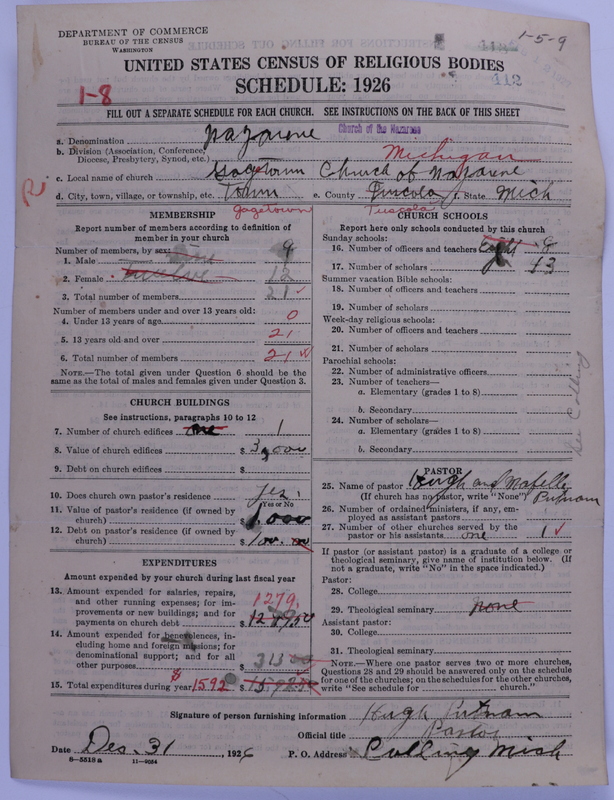 DEPARTMENT OF COMMERCE
BUREAU OF THE CENSUS
WASHINGTON
1-5-9
412
UNITED STATES CENSUS OF RELIGIOUS BODIES
SCHEDULE: 1926
1-8
FILL OUT A SEPARATE SCHEDULE FOR EACH CHURCH. SEE INSTRUCTIONS ON THE BACK OF THIS SHEET
Church of the Nazarene
a. Denomination Nazarene
b. Division (Association, Conference, Diocese, Presbytery, Synod, etc.) Michigan
c. Local name of church Gagetown Church of Nazarene
d. City, town, village, or township, etc. Town e. County Tuscola f. State Mich
Gagetown Tuscola
R.
MEMBERSHIP
Report number of members according to definition of
member in your church
Number of members, by sex:
1. Male 9
2. Female twelve 12
3. Total number of members 21
Number of members under and over 13 years old:
4. Under 13 years of age 0
5. 13 years old and over 21
6. Total number of members 21
NOTE.—The total given under Question 6 should be
the same as the total of males and females given under Question 3.
CHURCH BUILDINGS
See instructions, paragraphs 10 to 12
7. Number of church edifices one 1
8. Value of church edifices $ 3,000
9. Debt on church edifices $
10. Does church own pastor's residence yes
Yes or No
11. Value of pastor's residence (if owned by
church) $ 1,000
12. Debt on pastor's residence (if owned by
church) $ 100.00
EXPENDITURES
Amount expended by your church during last fiscal year
13. Amount expended for salaries, repairs,
and other running expenses; for im-
provements or new buildings; and for
payments on church debt $ 1279
14. Amount expended for benevolences, in-
cluding home and foreign missions; for
denominational support; and for all
other purposes 313
15. Total expenditures during year $ 1592
CHURCH SCHOOLS
Report here only schools conducted by this church
Sunday schools:
16. Number of officers and teachers Eight 8
17. Number of scholars 53
Summer vacation Bible schools:
18. Number of officers and teachers
19. Number of scholars
Week-day religious schools:
20. Number of officers and teachers
21. Number of scholars
Parochial schools:
22. Number of administrative officers
23. Number of teachers—
a. Elementary (grades 1 to 8)
b. Secondary
24. Number of scholars—
a. Elementary (grades 1 to 8)
b. Secondary
See Colling
PASTOR
25. Name of pastor Hugh and Putnam
(If church has no pastor, write "None")
26. Number of ordained ministers, if any, em-
ployed as assistant pastors
27. Number of other churches served by the
pastor or his assistants one 1
If pastor (or assistant pastor) is a graduate of a college or
theological seminary, give name of institution below. (If
not a graduate, write "No" in the space indicated.)
Pastor:
28. College
29. Theological seminary none
Assistant pastor:
30. College
31. Theological seminary
NOTE.—Where one pastor serves two or more churches,
Questions 28 and 29 should be answered only on the schedule
for one of the churches; on the schedules for the other churches,
write "See schedule for church."
Signature of person furnishing information Hugh Putnam
Official title Pastor
Date Des. 31, 1926 P. O. Address Colling Mich
8—5518 a 11—9024